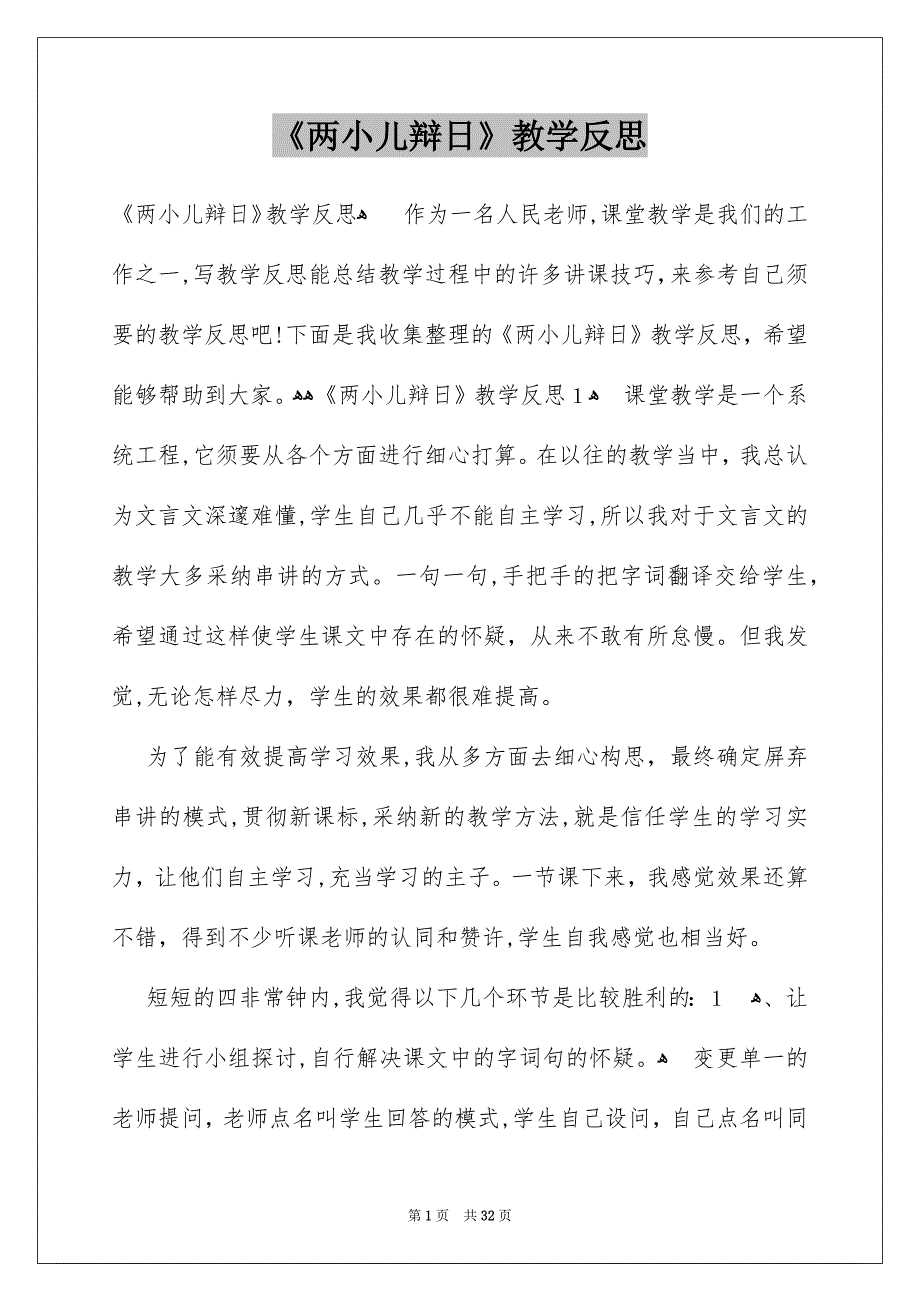 《两小儿辩日》教学反思
《两小儿辩日》教学反思ﻫ　作为一名人民老师,课堂教学是我们的工
作之一,写教学反思能总结教学过程中的许多讲课技巧,来参考自己须
要的教学反思吧!下面是我收集整理的《两小儿辩日》教学反思，希望
能够帮助到大家。ﻫﻫ《两小儿辩日》教学反思1ﻫ　课堂教学是一个系
统工程,它须要从各个方面进行细心打算。在以往的教学当中，我总认
为文言文深邃难懂,学生自己几乎不能自主学习,所以我对于文言文的
教学大多采纳串讲的方式。一句一句,手把手的把字词翻译交给学生,
希望通过这样使学生课文中存在的怀疑，从来不敢有所怠慢。但我发
觉,无论怎样尽力，学生的效果都很难提高。
为了能有效提高学习效果,我从多方面去细心构思，最终确定屏弃
串讲的模式,贯彻新课标,采纳新的教学方法,就是信任学生的学习实
力，让他们自主学习,充当学习的主子。一节课下来，我感觉效果还算
不错，得到不少听课老师的认同和赞许,学生自我感觉也相当好。
短短的四非常钟内,我觉得以下几个环节是比较胜利的：1　ﻫ、让
学生进行小组探讨,自行解决课文中的字词句的怀疑。ﻫ　变更单一的
老师提问，老师点名叫学生回答的模式,学生自己设问，自己点名叫同
第1页 共32页